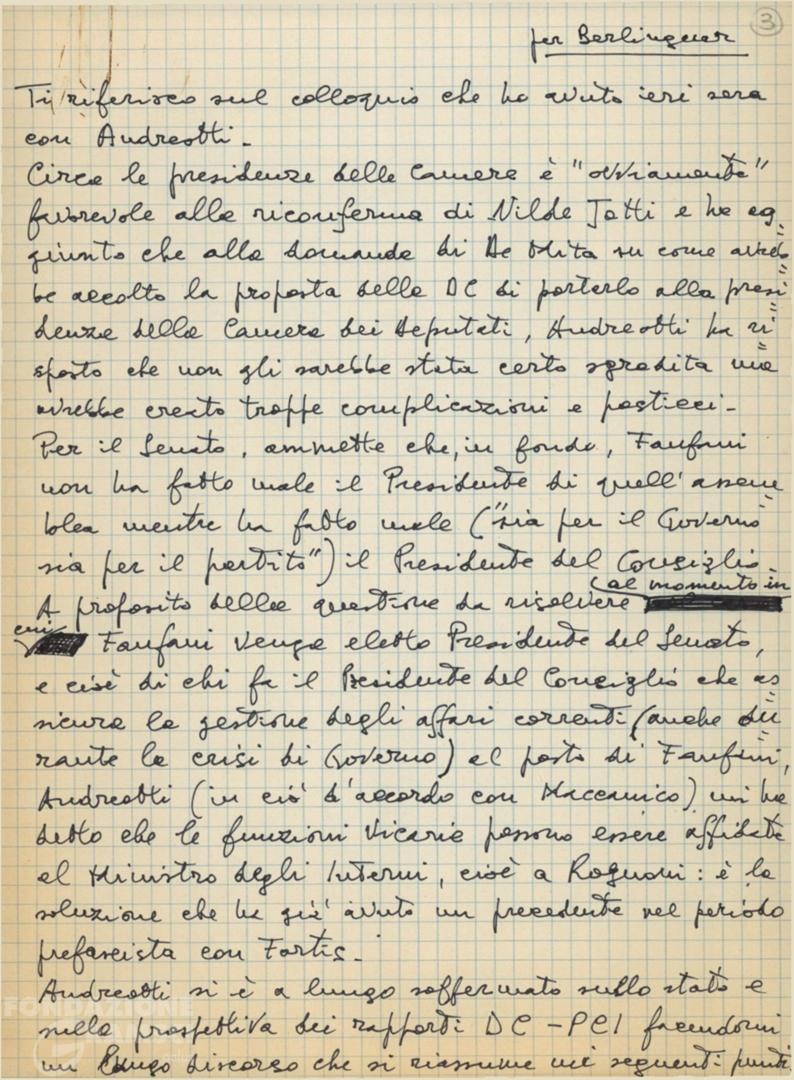 3
per Berlinguer
Ti riferisco sul colloquio che ho avuto ieri sera
con Andreotti.
Circa le presidenze delle Camere è "ovviamente"
favorevole alla riconferma di Nilde Jotti e ha ag=
giunto che alla domanda di De Mita su come avreb=
be accolto la proposta della DC di portarlo alla presi=
denza della Camera dei Deputati, Andreotti ha ri=
sposto che non gli sarebbe stata certo sgradita ma
avrebbe creato troppe complicazioni e pasticci.
Per il Senato, ammette che, in fondo, Fanfani
non ha fatto male il Presidente di quell'assem=
blea mentre ha fatto male ("sia per il Governo
sia per il partito") il Presidente del Consiglio.
A proposito della questione da risolvere al momento in
cui Fanfani venga eletto Presidente del Senato,
e cioè di chi fa il Presidente del Consiglio che as=
sicura la gestione degli affari correnti (anche du=
rante la crisi di Governo) al posto di Fanfani,
Andreotti (in ciò d'accordo con Maccanico) mi ha
detto che le funzioni vicarie possono essere affidate
al Ministro degli Interni, cioè a Rognoni: è la
soluzione che ha già avuto un precedente nel periodo
prefascista con Fortis.
Andreotti si è a lungo soffermato sullo stato e
sulla prospettiva dei rapporti DC-PCI facendomi
un lungo discorso che si riassume nei seguenti punti